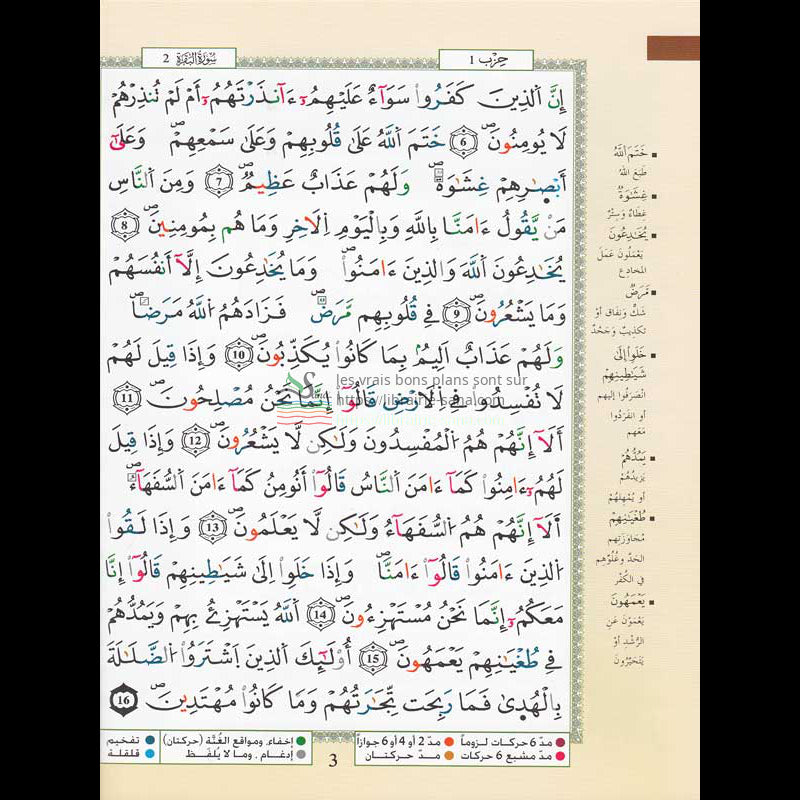 سُورَةُ البَقَرَة 2
حِزْب 1
إِنَّ اَ۬لذِينَ كَفَرُواْ سَوَآءٌ عَلَيْهِمُۥٓ ءَآنذَرْتَهُمُۥٓ أَمْ لَمْ تُنذِرْهُمْ
لَا يُومِنُونَۖ 6 خَتَمَ اَ۬للَّهُ عَلَىٰ قُلُوبِهِمْ وَعَلَىٰ سَمْعِهِمْۖ وَعَلَىٰٓ
أَبْصٰ۪رِهِمْ غِشَٰوَةٌۖ وَلَهُمْ عَذَابٌ عَظِيمٌۖ 7 وَمِنَ اَ۬لنَّاسِ
مَنْ يَّقُولُ ءَامَنَّا بِاللَّهِ وَبِالْيَوْمِ اِ۬لَاخِرِ وَمَا هُم بِمُومِنِينَۖ 8
يُخَٰدِعُونَ اَ۬للَّهَ وَالذِينَ ءَامَنُواْۖ وَمَا يُخَٰدِعُونَ إِلَّآ أَنفُسَهُمْ
وَمَا يَشْعُرُونَۖ 9 فِے قُلُوبِهِم مَّرَضٌۖ فَزَادَهُمُ اُ۬للَّهُ مَرَضاًۖ
وَلَهُمْ عَذَابٌ اَلِيمُۢ بِمَا كَانُواْ يُكَذِّبُونَۖ 10 وَإِذَا قِيلَ لَهُمْ
لَا تُفْسِدُواْ فِے اِ۬لَارْضِ قَالُوٓاْ إِنَّمَا نَحْنُ مُصْلِحُونَۖ 11
أَلَآ إِنَّهُمْ هُمُ اُ۬لْمُفْسِدُونَ وَلَٰكِن لَّا يَشْعُرُونَۖ 12 وَإِذَا قِيلَ
لَهُمُۥٓ ءَامِنُواْ كَمَآ ءَامَنَ اَ۬لنَّاسُ قَالُوٓاْ أَنُومِنُ كَمَآ ءَامَنَ اَ۬لسُّفَهَآءُۖ
أَلَآ إِنَّهُمْ هُمُ اُ۬لسُّفَهَآءُ وَلَٰكِن لَّا يَعْلَمُونَۖ 13 وَإِذَا لَقُواْ
اُ۬لذِينَ ءَامَنُواْ قَالُوٓاْ ءَامَنَّاۖ وَإِذَا خَلَوِاْ اِلَىٰ شَيَٰطِينِهِمْ قَالُوٓاْ إِنَّا
مَعَكُمُۥٓ إِنَّمَا نَحْنُ مُسْتَهْزِءُونَۖ 14 اَ۬للَّهُ يَسْتَهْزِئُ بِهِمْ وَيَمُدُّهُمْ
فِے طُغْيَٰنِهِمْ يَعْمَهُونَۖ 15 أُوْلَٰٓئِكَ اَ۬لذِينَ اَ۪شْتَرَوُاْ اُ۬لضَّلَٰلَةَ
بِالْهُدَىٰ فَمَا رَبِحَت تِّجَٰرَتُهُمْ وَمَا كَانُواْ مُهْتَدِينَۖ 16
خَتَمَ اللَّهُ
طَبَعَ اللهُ
غِشَٰوَةٌ
غِطَاءٌ وَسِتْرٌ
يُخَٰدِعُونَ
يَعْمَلُونَ عَمَلَ
المُخَادِعِ
مَّرَضٌ
شَكٌّ وَنِفَاقٌ أوْ
تَكْذِيبٌ وَجَحْدٌ
خَلَوِاْ اِلَىٰ
شَيَٰطِينِهِمْ
انْصَرَفُوا إليهم
أو انفَرَدُوا
مَعَهم
يَمُدُّهُمْ
يَزِيدُهُمْ
أو يُمْهِلُهُمْ
طُغْيَٰنِهِمْ
مُجَاوَزَتِهِم
الحَدَّ وغُلُوِّهِم
في الكُفْرِ
يَعْمَهُونَ
يَعْمَوْنَ عَنِ
الرُّشْدِ أوْ
يَتَحَيَّرُونَ
les vrais bons plans sont sur
https://librairie-sana.com
مدّ 6 حركات لزوماً
مدّ 2 أو 4 أو 6 جوازاً
إخفاء، ومواقع الغُنَّة (حركتان)
تفخيم
مدّ مشبع 6 حركات
مدّ حركتان
إدغام، وما لا يُلفَظ
قلقلة
3